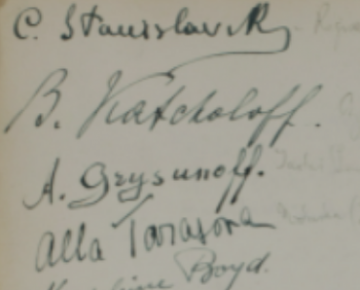 C. Stanislavsk
B. Katcholoff.
A. Gzysunoff.
Alla Tarasova
Boyd.